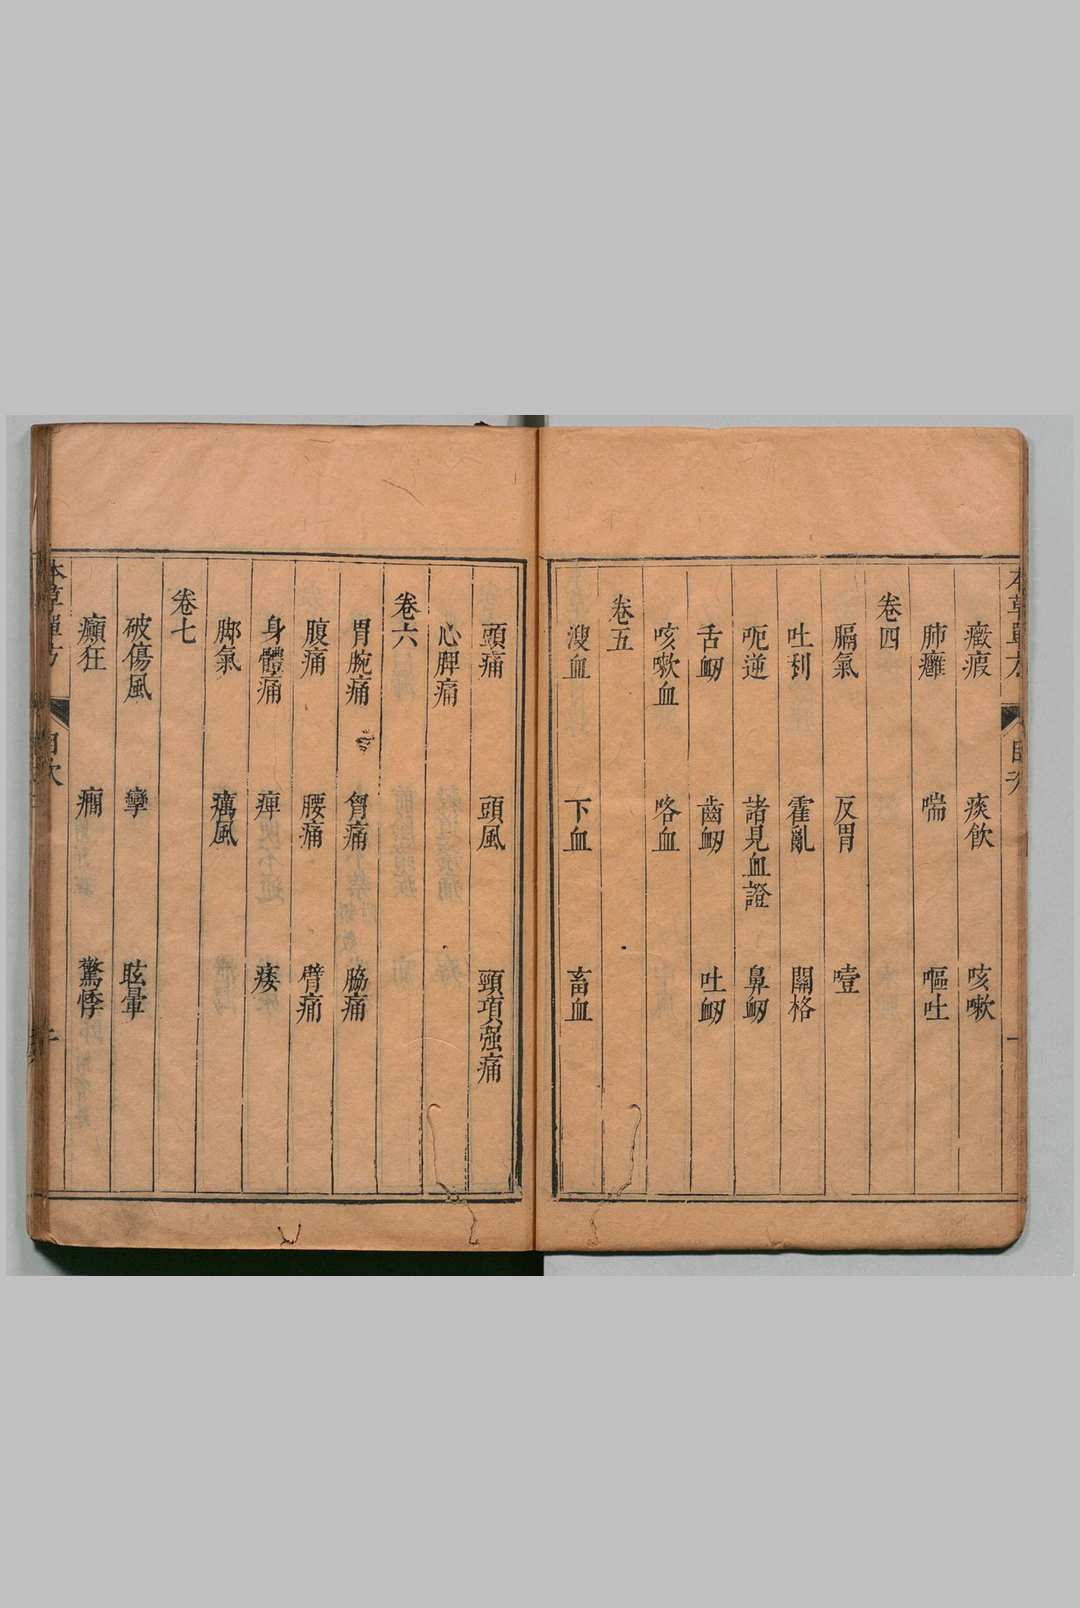 癥瘕 痰飲 咳嗽
肺癰 喘 嘔吐
卷四
膈氣 反胃 噎
吐利 霍亂 關格
呃逆 諸見血證 鼻衂
舌衂 齒衂 吐衂
咳嗽血 咯血
卷五
溲血 下血 畜血
頭痛 頭風 頸項强痛
心脾痛
卷六
胃脘痛 胷痛 脇痛
腹痛 腰痛 臂痛
身體痛 痺 痿
脚氣 癘風
卷七
破傷風 攣 眩暈
癲狂 癇 驚悸
本草單方 目次